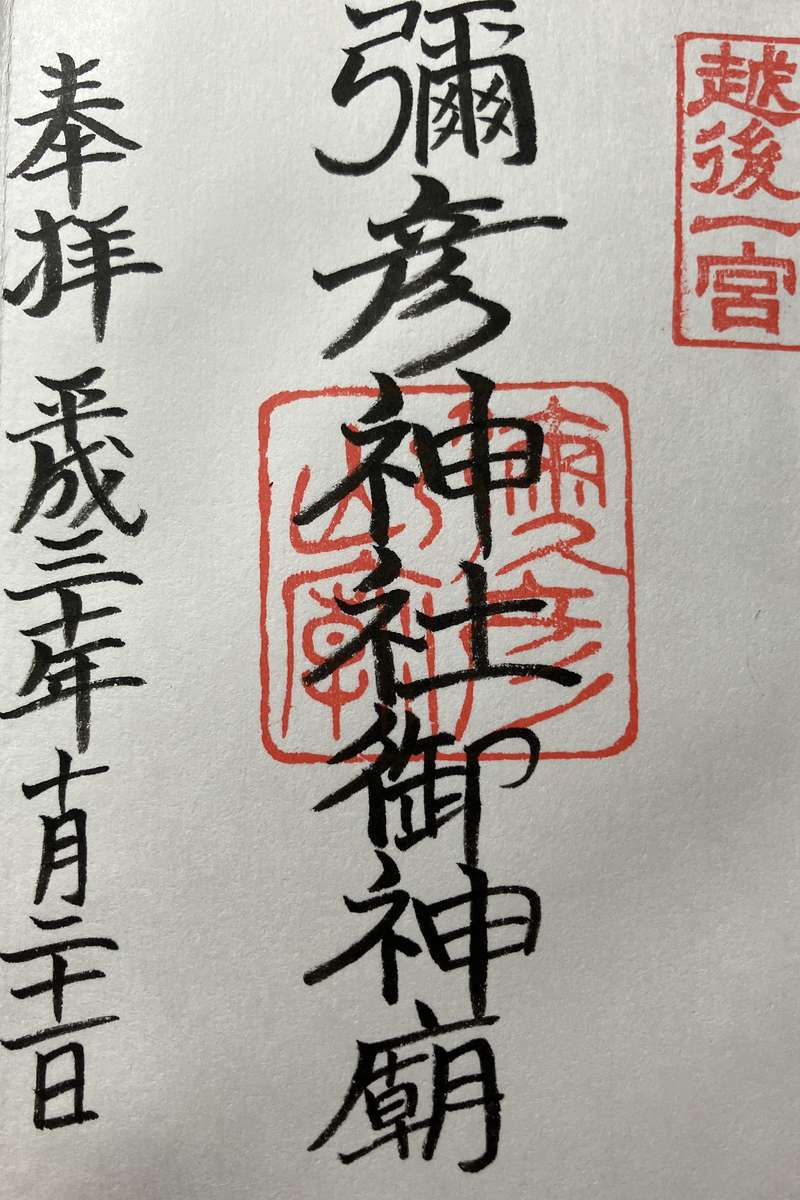 越後一宮
彌彦神社御神廟
彌彦山廟
奉拝 平成三十年十月二十一日